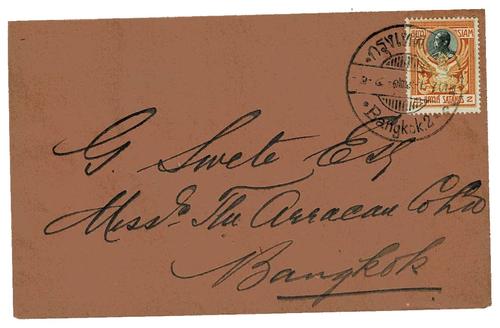 SIAM
2
Bangkok.2
G. Swete Esq
Messrs The Arracan Co Ld
Bangkok